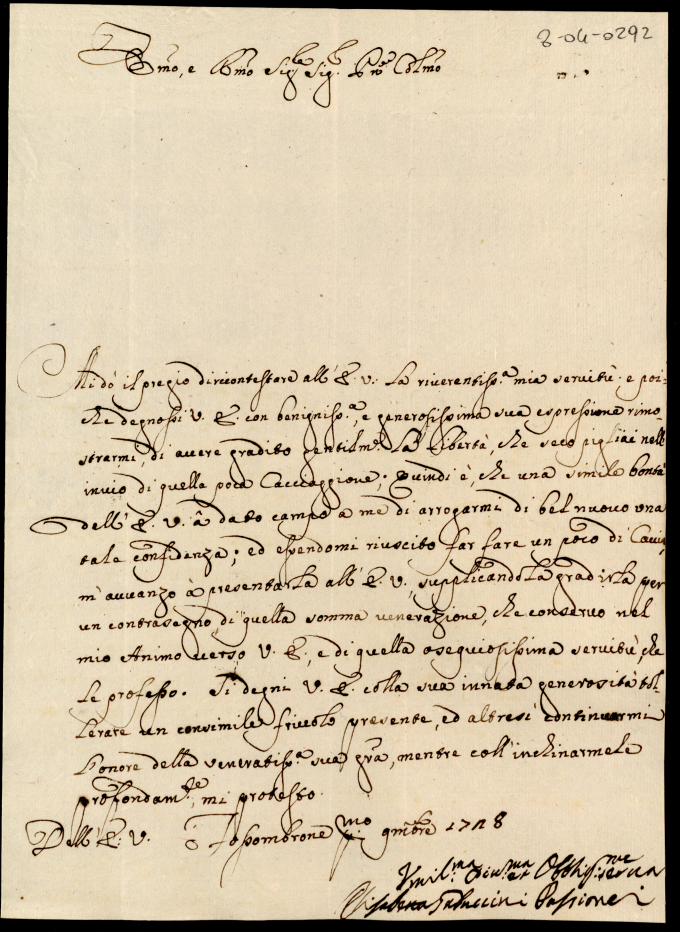 8-04-0292
Emo, e Rmo Sigre Sigr Pne Colmo
Mi dò il pregio di ricontestare all' E. V. la riverentissa mia servitù; e poi-
che degnossi V. E. con benignissa, e generosissima sua espressione rimo
strarmi, di avere gradito gentilmte la libertà, che seco pigliai nell'
invio di quella poca Cacciaggione; Quindi è, che una simile bontà
dell' E. V. â dato campo a me di arrogarmi di bel nuovo una
tale confidenza; ed essendomi riuscito far fare un poco di
m' avvanzo à presentarla all' E. V., supplicandola gradirla per
un contrasegno, di quella somma venerazione, che conservo nel
mio Animo verso V. E., e di quella osequiosissima servitù, che
le professo. Si degni V. E. colla sua innata generosità tol-
lerare un consimile frivolo presente, ed altresì continuarmi
l'onore della veneratissa sua gra, mentre coll' inchinarmele
profondamte, mi protesto.
Dell' E. V. Fossombrone pmo 9mbre 1728
Umilma Divma et Obblisma serva
Passionei